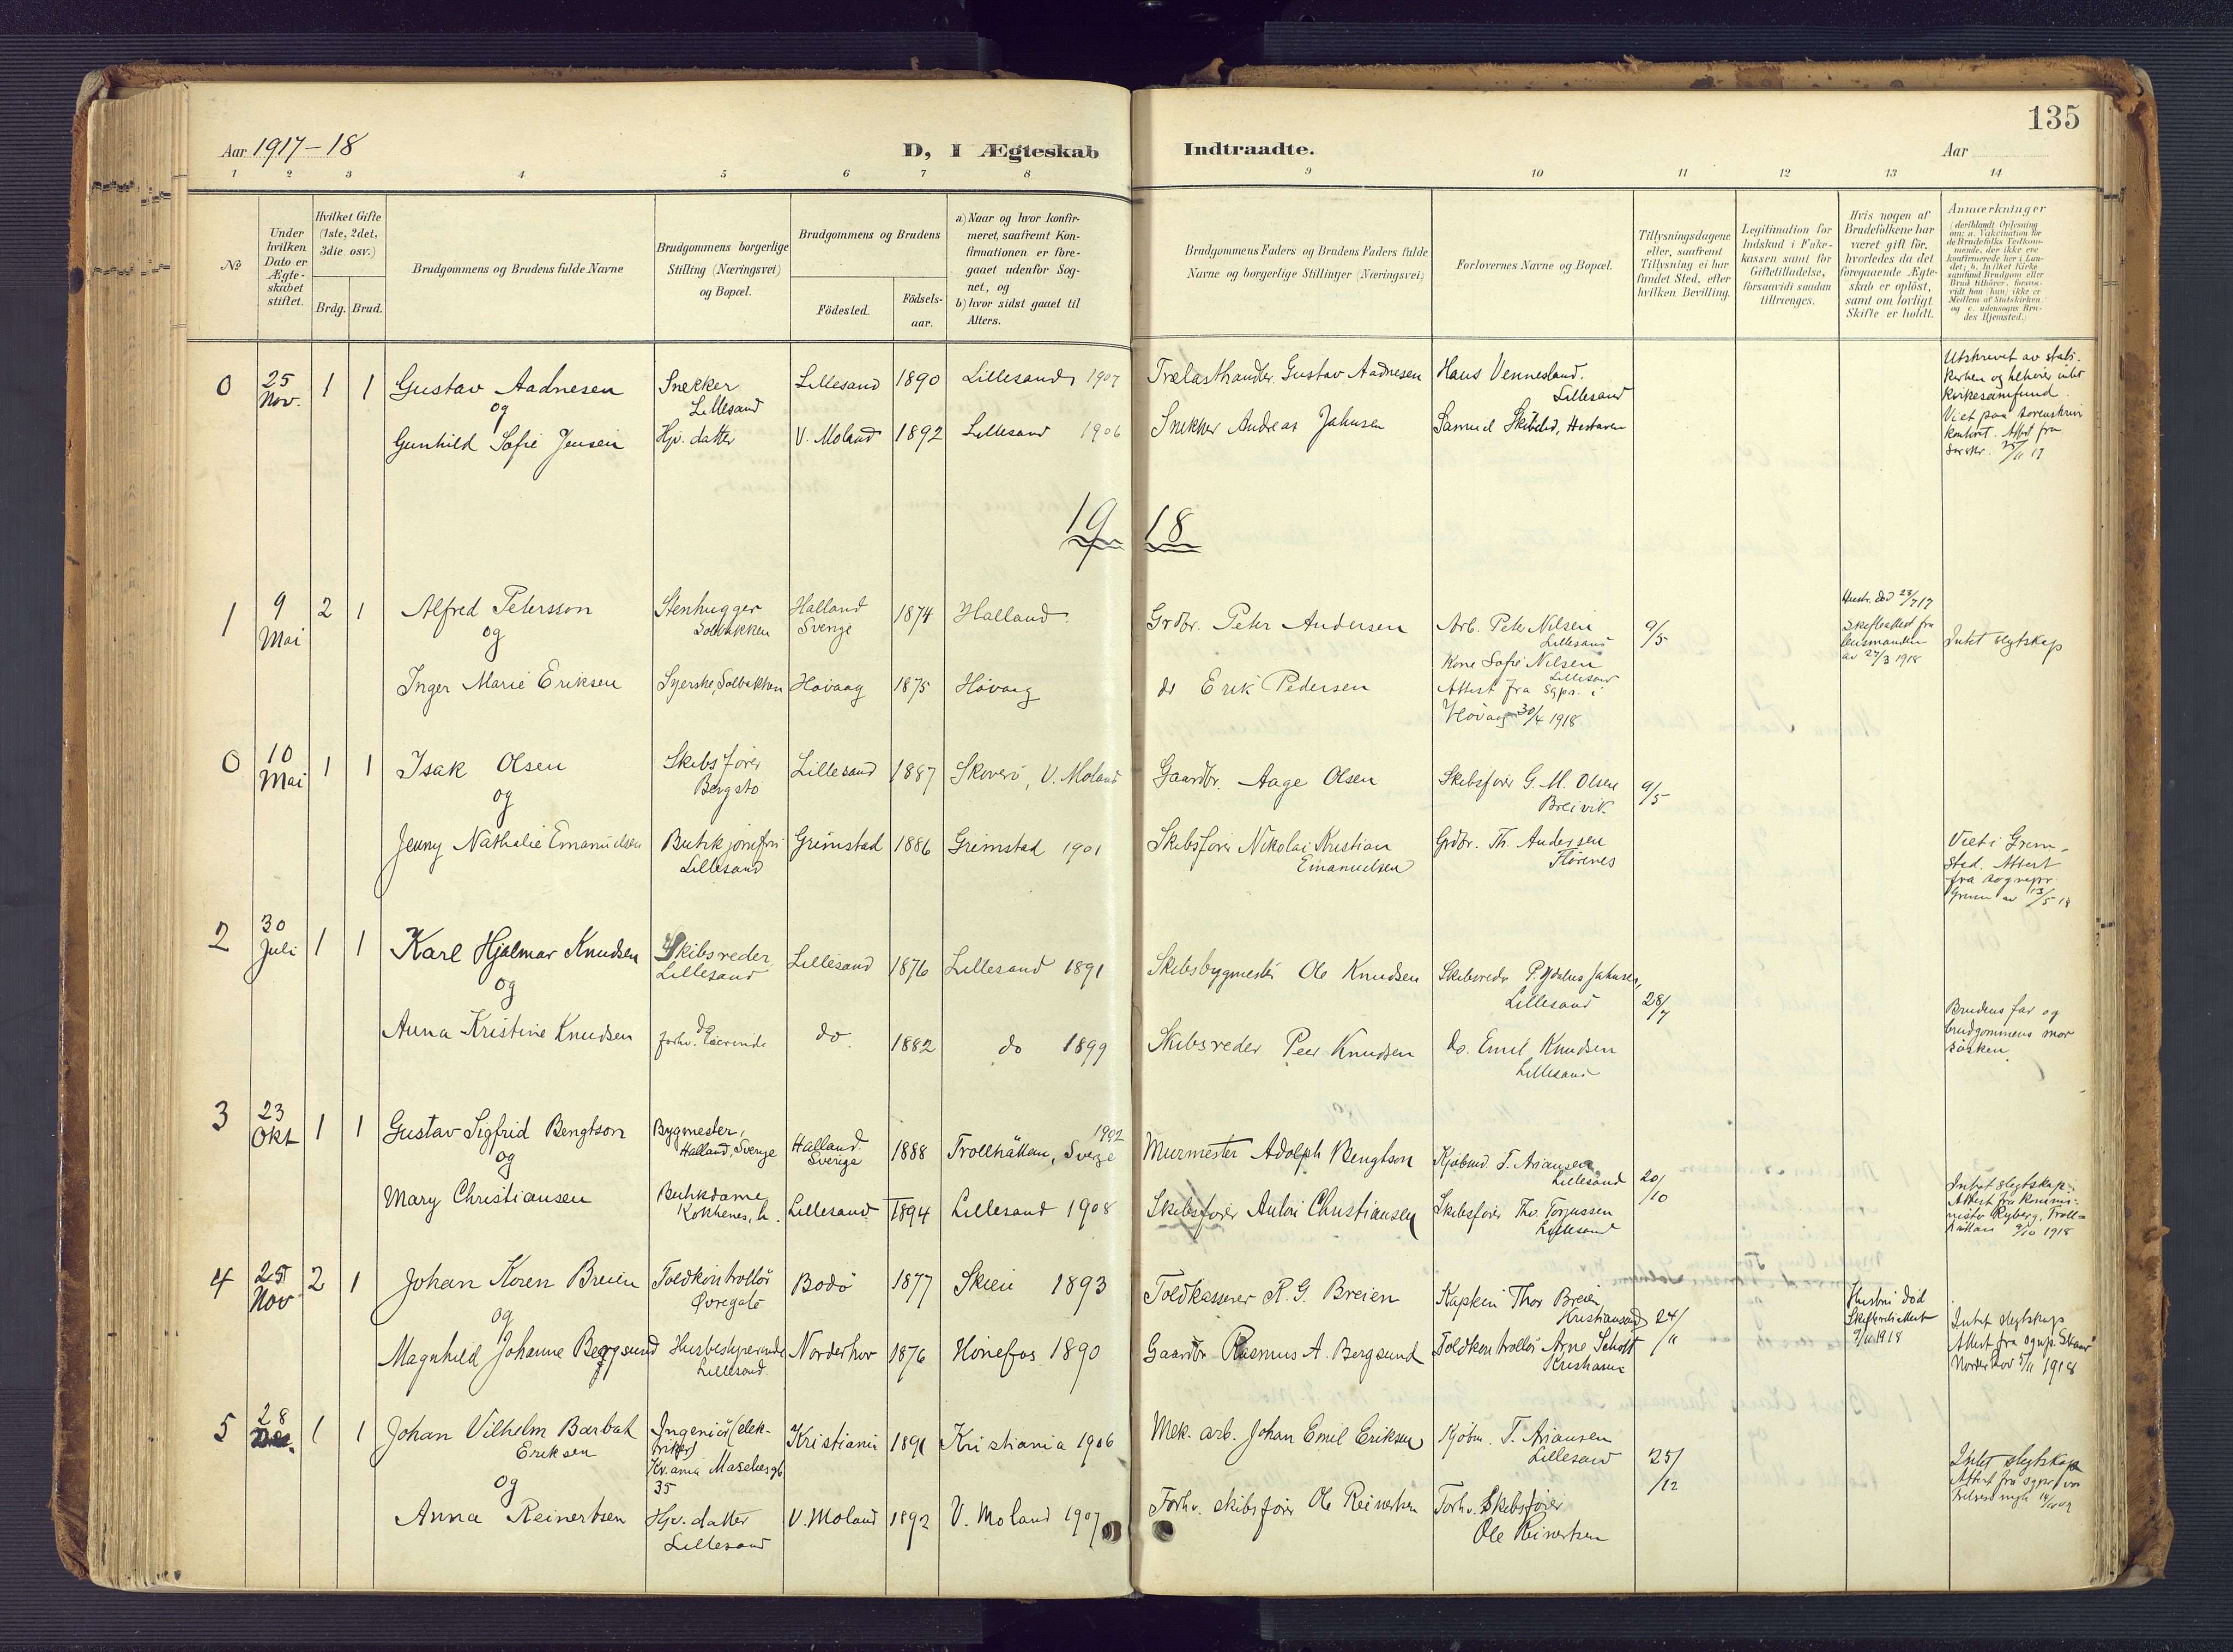 135
Aar 1917-18
D, I Ægteskab
Indtraadte.
Aar
1 2 3 4 5 6 7 8 9 10 11 12 13 14
No
Under
hvilken
Dato er
Ægte-
skabet
stiftet.
Hvilket Gifte
(1ste, 2det,
3die osv.)
Brdg. Brud.
Brudgommens og Brudens fulde Navne
Brudgommens borgerlige
Stilling (Næringsvei)
og Bopæl.
Brudgommens og Brudens
Födested.
Födsels-
aar.
a) Naar og hvor konfir-
meret, saafremt Kon-
firmationen er fore-
gaaet udenfor Sog-
net, og
b) hvor sidst gaaet til
Alters.
Brudgommens Faders og Brudens Faders fulde
Navne og borgerlige Stillinger (Næringsvei)
Forlovernes Navne og Bopæl.
Tillysningsdagene
eller, saafremt
Tillysning ei har
fundet Sted, efter
hvilken Bevilling.
Legitimation for
Indskud i Enke-
kassen samt for
Giftetilladelse,
forsaavidt saadan
tiltrænges.
Hvis nogen af
Brudefolkene har
været gift før,
hvorledes da det
foregaaende Ægte-
skab er oplöst,
samt om lovligt
Skifte er holdt.
Anmærkninger
(deriblandt Oplysning
om: a. Vakcination for
de Brudefolks Vedkom-
mende, der ikke ere
konfirmerede her i Lan-
det; b. hvilket Kirke-
samfund Brudgom eller
Brud tilhörer, forsaa-
vidt han (hun) ikke er
Medlem af Statskirken
og c. udensogns Bru-
des Hjemsted.)
0 25 Nov. 1 1
Gustav Aadnesen
og
Gunhild Sofie Jensen
Snekker
Lillesand
Hjv. datter
Lillesand 1890 Lillesand 1907
V. Moland 1892 Lillesand 1906
Trælasthandler Gustav Aadnesen
Snekker Andreas Jahnsen
Hans Vennesland.
Lillesand
Samuel
Utskrevet av stats-
kirken og tilhører intet
kirkesamfund.
Viet paa sorenskriv
kontoret. Attest fra
sorskr. 25/11 17
1918
1 9 Mai 2 1
Alfred Petersson
og
Inger Marie Eriksen
Stenhugger
Solbakken
Syerske, Solbakken
Halland
Sverige
1874 Halland.
Høvaag 1875 Høvaag
Grdbr. Peter Andersen
do Erik Pedersen
Arb. Peter Nilsen
Lillesand
Kone Sofie Nilsen
Lillesand
Attest fra Sgpr. i
Høvaag 30/4 1918
9/5
Hustr. død 23/7 17
Skifteattest fra
lensmanden
av 27/3 1918
Intet slegtskap
0 10 Mai 1 1
Isak Olsen
og
Jenny Nathalie Emanuelsen
Skibsfører
Bergstø
Butikjomfru
Lillesand
Lillesand 1887 Skoverö, V. Moland
Grimstad 1886 Grimstad 1901
Gaardbr. Aage Olsen
Skibsfører Nikolai Kristian
Emanuelsen
Skibsfører G. M. Olsen
Breivik
Grdbr. Th. Andersen
Flørenes
9/5
Viet i Grim-
stad. Attest
fra sognepr.
Grimst av 13/5 18
2 30 Juli 1 1
Karl Hjalmar Knudsen
og
Anna Kristine Knudsen
Skibsreder
Lillesand
do
forhv. Lærerinde
Lillesand 1876 Lillesand 1891
do. 1882 do 1899
Skibsbygmester Ole Knudsen
Skibsreder Peer Knudsen
Skibsreder P. Jahnsen,
Lillesand
do. Emil Knudsen
Lillesand
28/7
Brudens far og
brudgommens mor
søsken.
3 23 Okt 1 1
Gustav Sigfrid Bengtson
og
Mary Christiansen
Bygmester,
Halland, Sverige
Butikdame
Kokkenes, L.
Halland.
Sverige
1888 Trollhättan, Sverge 1902
Lillesand 1894 Lillesand 1908
Murmester Adolph Bengtson
Skibsfører Anton Christiansen
Kjøbmd. T. Ariansen
Lillesand
Skibsfører Thv. Torjussen
Lillesand
20/10
Intet slegtskap.
Attest fra kommi-
nister Ryberg, Troll-
hättan 9/10 1918
4 25 Nov 2 1
Johan Koren Breien
og
Magnhild Johanne Bergsund
Toldkontrollør
Øvregate
Husbestyrerinde
Lillesand.
Bodø 1877 Skien 1893
Norderhov 1876 Hønefos 1890
Toldkasserer R. G. Breien
Gaardbr Rasmus A. Bergsund
Kaptein Thor Breien
Kristiansand
Toldkontrollør Arne Scholt
Kristiania
24/11
Hustru død
Skifteretsattest
9/11 1918
Intet slegtskap
Attest fra sognp.
Norderhov 5/11 1918
5 28 Dec. 1 1
Johan Vilhelm Barbak
Eriksen
og
Anna Reinertsen
Ingeniør (elek-
triker)
Kr.ania Maselvesgt
35
Hjv. datter
Lillesand
Kristiania 1891 Kristiania 1906
V. Moland 1892 V. Moland 1907
Mek. arb. Johan Emil Eriksen
Forhv. skibsfører Ole Reinertsen
Kjøbm. T. Ariansen
Lillesand
Forhv. Skibsfører
Ole Reinertsen
25/12
Intet slegtskap
Attest fra sgnpr